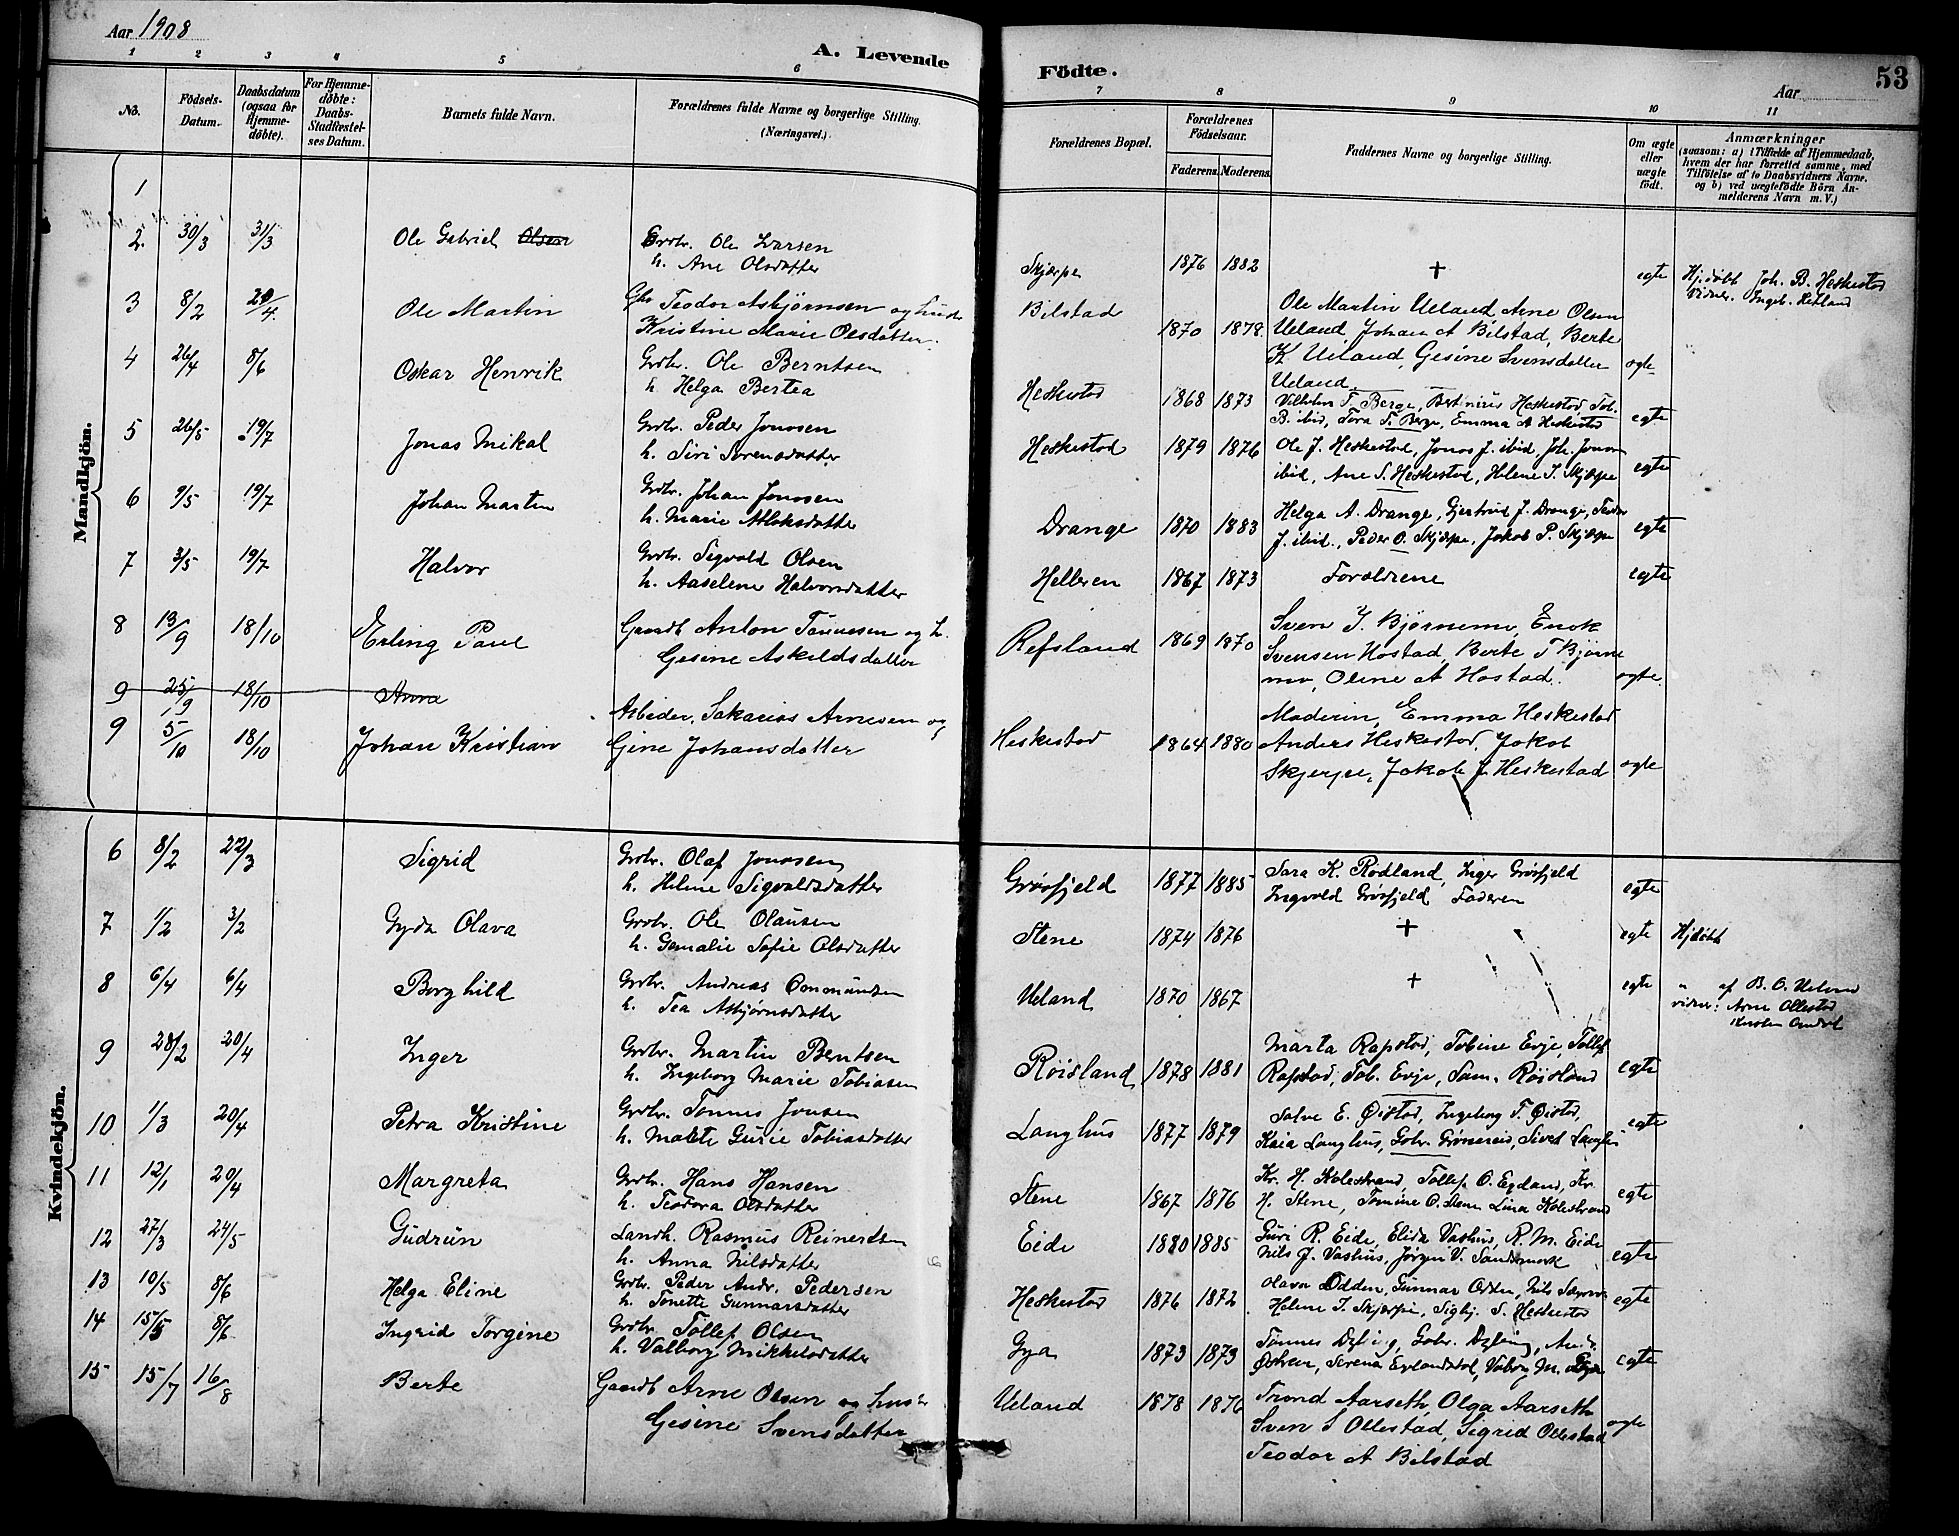 Aar 1908
A. Levende
Födte.
53
Aar
1 2 3 4 5 6 7 8 9 10 11
No.
Födsels-Datum.
Daabsdatum (ogsaa for Hjemme-döbte).
For Hjemme-döbte: Daabs-Stadfæstel-ses Datum.
Barnets fulde Navn.
Forældrenes fulde Navne og borgerlige Stilling. (Næringsvei.)
Forældrenes Bopæl.
Forældrenes Födselsaar.
Faderens. Moderens.
Faddernes Navne og borgerlige Stilling.
Om ægte eller uægte födt.
Anmærkninger
(saasom: a) i Tilfælde af Hjemmedaab,
hvem der har forrettet samme, med
Tilföielse af to Daabsvidners Navne.
og b) ved uægtefödte Börn An-
melderens Navn m. V.)
Mandkjön.
1
2. 30/3 31/3 Ole Gabriel Olsen Grdbr. Ole Larsen
h. Ane Olsdatter Skjærpe 1876 1882 + egte Hj.döbt Joh. B. Heskestad
Vidner. Ingeb. Retland
3 8/2 20/4 Ole Martin Gbr Teodor Asbjørnsen og hustr
Kristine Marie Olsdatter. Bilstad 1870 1878. Ole Martin Ueland Arne Olsen
Ueland, Johan A Bilstad, Berte
K Ueland, Gesine Svensdatter
Ueland ægte
4 26/4 8/6 Oskar Henrik Grdbr. Ole Berntsen
h. Helga Bertea Heskestad 1868 1873 Vilhelm T. Berge, Bertinius Heskestad, Tob.
B. ibid, Tora T. Berge, Emma A Heskestad egte
5 26/5 19/7 Jonas Mikal Grdbr. Peder Jonosen
h. Siri Sørensdatter Heskestad 1879 1876 Ole J. Heskestad, Jonas J. ibid, Joh. Jonos
ibid, Ane S. Heskestad, Helene I. Skjærpe egte
6 9/5 19/7 Johan Martin Grdbr. Johan Jonosen
h. Marie Atlaksdatter Drange 1870 1883 Helga A. Drange, Gjertrud J. Drange, Teodor
J. ibid., Peder O. Skjærpe, Jakob P. Skjærpe egte
7 3/5 19/7 Halvor Grdbr. Sigvald Olsen
h. Aaselene Halvorsdatter Helleren 1867 1873 Forældrene egte
8 13/9 18/10 Erling Paul Gaardb Anton Tønnesen og h.
Gesine Askildsdatter Refsland 1869 1870 Sven I. Bjørnemo, Enok
Svensen Hostad, Berte T Bjørne
mo, Oline A Hostad. ægte.
9 25/9 18/10 Anna
9 5/10 18/10 Johan Kristian Arbeider, Sakarias Arnesen og
Gine Johansdatter Heskestad 1864 1880 Moderen, Emma Heskestad
Anders Heskestad, Jakob
Skjerpe, Jakob J. Heskestad ægte
Kvindekjön.
6 8/2 22/3 Sigrid Grdbr. Olaf Jonosen
h. Helene Sigvaldsdatter Grøsfjeld 1877 1885 Sara K. Rodland, Inger Grøsfjeld
Ingvald Grøsfjeld Faderen egte
7 1/2 3/2 Gyda Olava Grdbr. Ole Olausen
h. Gamalie Sofie Olsdatter Stene 1874 1876 + egte Hjdöbt
8 6/4 6/4 Borghild Grdbr. Andreas Ommundsen
h. Tea Asbjørnsdatter Ueland 1870 1867 + egte " af B. O. Ueland
vidner: Arne Ollestad
9 28/2 20/4 Inger Grdbr. Martin Bentsen
h. Ingeborg Marie Tobiasen Røisland 1878 1881 Marta Rapstad, Tobine Evje, Tollef
Rapstad, Tob. Evje, Sam. Røisland egte
10 1/3 20/4 Petra Kristine Grdbr. Tønnes Jonsen
h. Malete Gurie Tobiasdatter Langhus 1877 1879 Salve E. Øistad, Ingeborg T. Øistad,
Kaia Langhus, Gabr. Grøneveis, Sived Langhus egte
11 12/1 20/4 Margreta Grdbr. Hans Hansen
h. Teodora Olsdatter Stene 1867 1876 Kr. H. Kolestrand, Tollef O. Egeland, Kr.
H. Stene, Tomine O. Stene Lina Kolestrand egte
12 27/3 24/5 Gudrun Landh. Rasmus Reinertsen
h. Anna Nilsdatter Eide 1880 1885 Guri R. Eide, Elida Vashus, R. M. Eide
Nils J. Vashus, Jørgen V. Sandsmark egte
13 10/5 8/6 Helga Eline Grdbr. Peder Andr. Pedersen
h. Tonette Gunnarsdatter Heskestad 1876 1872 Olava Odden, Gunnar Odden, Nils
Helene I. Skjærpe, Sigbj. S. Heskestad egte
14 15/5 8/6 Ingrid Torgine Grdbr Tollef Olsen
h. Valborg Mikkelsdatter Gya 1873 1873 Tønnes Dyfing, Gabr. Dyfing, And.
Østrem, Serena Eylandsdal, Valborg M. Gya egte
15 15/7 16/8 Berte Gaardb Arne Olsen og hustr
Gesine Svensdatter Ueland 1878 1876 Trond Aarseth, Olga Aarseth
Sven S Ollestad, Sigrid Ollestad
Teodor A Bilstad ægte